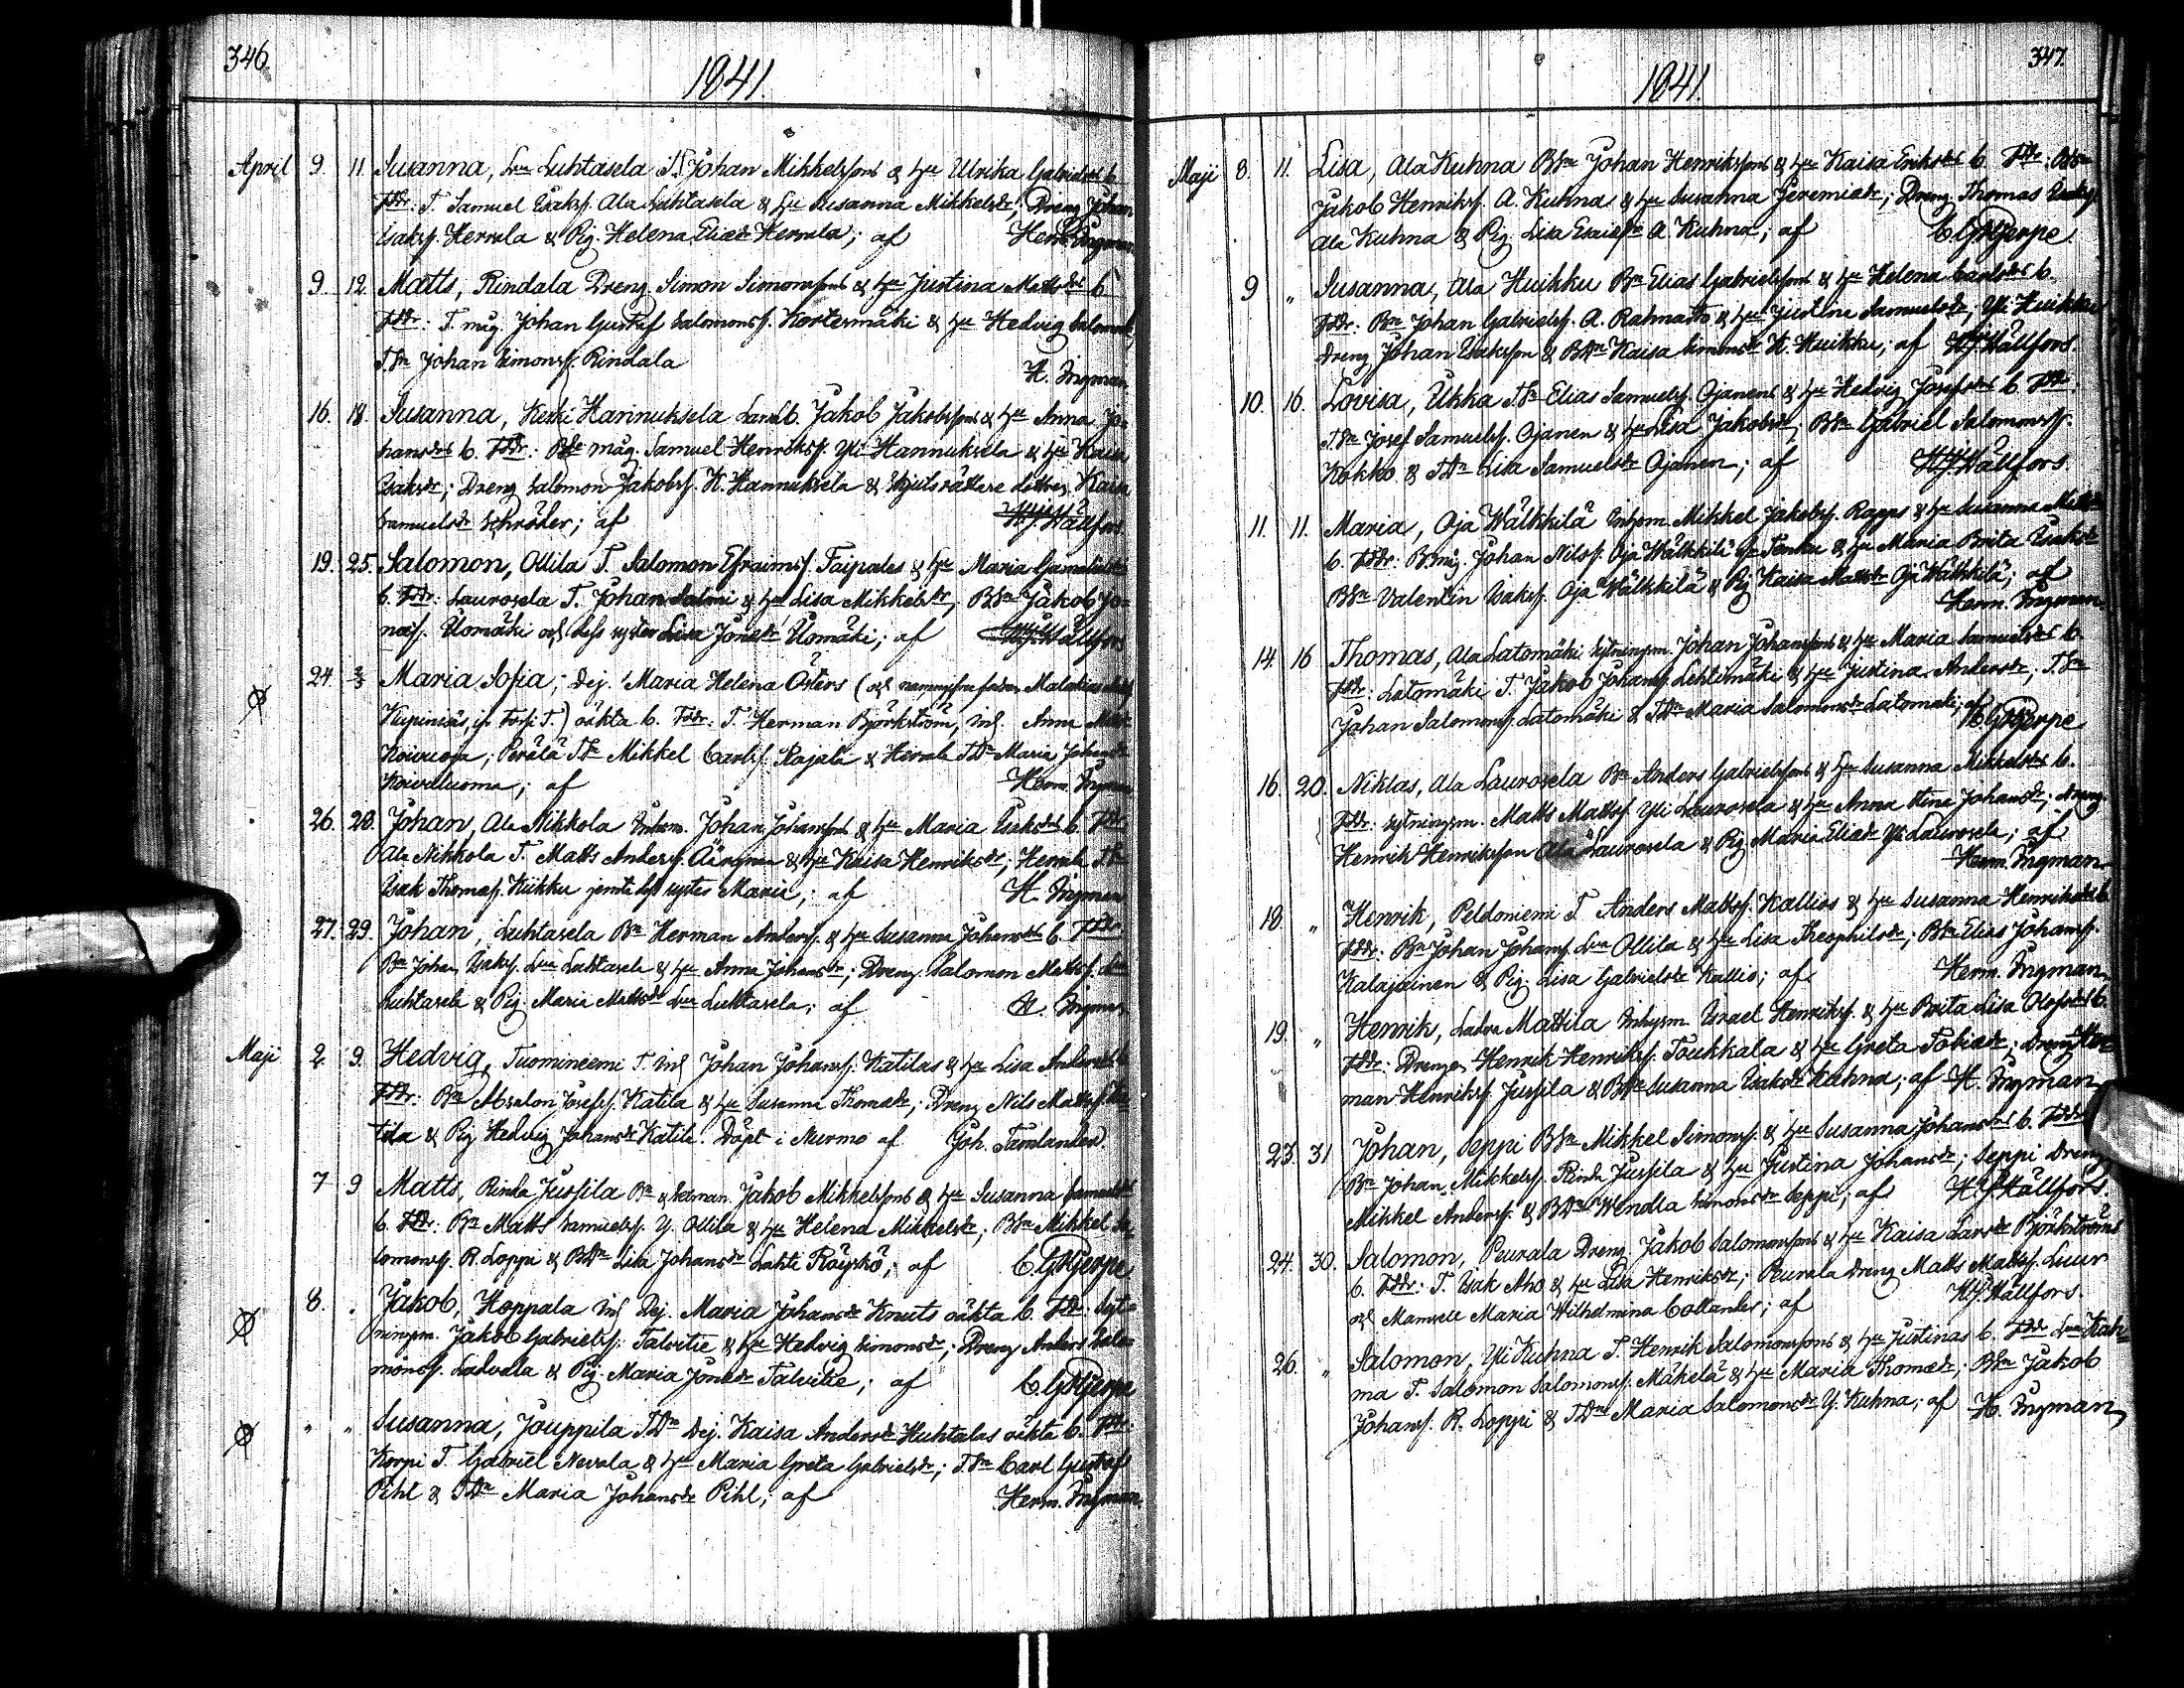 346.
1841
April 9. 11. Susanna, Lill Luhtasela Johan Mikkelssons & Hu Ulrika Gabrielsdrs b.
Fddr: T. Samuel Isakss. Ala Luhtasela & Hu Susanna Mikkelsdr; Dreng Johan
Isakss. Herrala & Pig. Helena Eliædr Herrala; af Herm. Ingman
9. 12. Matts, Rindala Dreng Simon Simonssons & Hu Justina Mattsdrs b.
Fddr: T. måg. Johan Gustaf Salomonss. Kortesmäki & Hu Hedvig Salomonsdr,
T.Sn Johan Simonss. Rindala H. Ingman.
16. 18. Susanna, Keski Hannuksela Jakob Jakobssons & Hu Anna Jo-
hansdrs b. Fddr: måg. Samuel Henrikss. Yli Hannuksela & Hu Kaisa
Isaksdr; Dreng Salomon Jakobss. K. Hannuksela & Skjutsrättare Kaisa
Samuelsdr Schröder; af H.J. Hällfors.
19. 25. Salomon, Ollila T. Salomon Efraimss. Taipales & Hu Maria
b. Fddr: Laurosela T. Johan Salmi & Hu Lisa Mikkelsdr, BSn Jakob Jo-
næss. Uomäki och dess syster Lisa Jonædr Uomäki; af H.J. Hällfors
24. Maria Sofia; Dej. Maria Helena Östers (och
T.) oäkta b. Fddr: T. Herman Björkström, inh. Anna
Perälä T.Sn Mikkel Carlss. Rajala & Herrala T.Dr Maria
Koiviluoma; af Herm. Ingman
26. 28. Johan, Ala Nikkola Inhm. Johan Johanssons & Hu Maria Isaksdrs b. Fddr:
Ala Nikkola T. Matts Anderss. & Hu Kaisa Henriksdr; Herrala T.Sn
Isak Thomæs. Kiikku jemte dess syster Maria; af H. Ingman
27. 29. Johan, Luhtasela Bn Herman Anderss. & Hu Susanna Johansdrs b. Fddr:
Bn Johan Isakss. Luhtasela & Hu Anna Johansdr; Dreng Salomon Mattss.
Luhtasela & Pig. Maria Mattsdr Luhtasela; af H. Ingman
Maji 2. 9. Hedvig, Tuominiemi T. inh Johan Johanss. Katilas & Hu Lisa Andersdrs b.
Fddr: Bn Absalon Josefss. Katila & Hu Susanna Thomædr; Dreng Nils Mattss. Ka-
tila & Pig Hedvig Johansdr Katila. Döpt i Nurmo af Joh. Tamlander
7 9 Matts, Rinta Jussila Bn Jakob Mikkelssons & Hu Susanna Samuelsdrs
b. Fddr: Bn Matts Samuelss. Y. Ollila & Hu Helena Mikkelsdr; BSn Mikkel Sa-
lomonss. R. Loppi & BDr Lisa Johansdr Lahti Röyskö; af C.G. Hjerpe
8. " Jakob, Koppala inh Dej. Maria Johansdr Knuts oäkta b. Fddr: Syt-
ningsm. Jakob Gabrielss. Talvitie & Hu Hedvig Simonsdr; Dreng Anders Salo-
monss. Ladvala & Pig. Maria Jonædr Talvitie; af C.G. Hjerpe
" " Susanna, Jouppila T.Dr Dej. Kaisa Andersdr Huhtalas oäkta b. Fddr:
Korpi T. Gabriel Nevala & Hu Maria Greta Gabrielsdr; T.Sn Carl Gustaf
Pihl & T.Dr Maria Johansdr Pihl; af Herm. Ingman.
347.
1841.
Maji 8. 11. Lisa, Ala Kuhna BSn Johan Henrikssons & Hu Kaisa Eriksdrs b. Fddr:
Jakob Henrikss. A. Kuhna & Hu Susanna Jeremiædr; Dreng Thomas
Ala Kuhna & Pig. Lisa Esaiædr A. Kuhna; af C.G. Hjerpe
9 " Susanna, Ala Huikku Bn Elias Gabrielssons & Hu Helena Carlsdrs b.
Fddr: Bn Johan Gabrielss. A. Rahnasto & Hu Justina Samuelsdr; Yli Huikku
Dreng Johan Isaksson & BDr Kaisa Simonsdr K. Huikku; af H.J. Hällfors.
10. 16. Lovisa, Ukka T.Sn Elias Samuelss. Ojanens & Hu Hedvig Josefsdrs b. Fddr:
T.Sn Josef Samuelss. Ojanen & Hu Lisa Jakobsdr; BSn Gabriel Salomonss.
Kokko & T.Dr Lisa Samuelsdr Ojanen; af H.J. Hällfors
11. 11. Maria, Oja Wälkkilä Inhysm. Mikkel Jakobss. Rapps & Hu Susanna Mattsdrs
b. Fddr: B.måg. Johan Nilss. Oja Wälkkilä & Hu Maria Brita Isaksdr
BSn Valentin Isakss. Oja Wälkkilä & Pig Kaisa Mattsdr Oja Wälkkilä; af
Herm. Ingman.
14. 16 Thomas, Ala Latomäki Sytningsm. Johan Johanssons & Hu Maria Samuelsdrs b.
Fddr: Latomäki T. Jakob Johanss. Lehtimäki & Hu Justina Andersdr; T.Sn
Johan Salomonss. Latomäki & T.Dr Maria Salomonsdr Latomäki; af C.G. Hjerpe
16. 20. Niklas, Ala Laurosela Bn Anders Gabrielssons & Hu Susanna Mikkelsdrs b.
Fddr: Sytningsm. Matts Mattss. Yli Laurosela & Hu Anna Stina Johansdr; Dreng
Henrik Henriksson Ala Laurosela & Pig Maria Eliædr Yli Laurosela; af
Herm. Ingman
18. " Henrik, Peldoniemi T. Anders Mattss. Kallios & Hu Susanna Henriksdrs b.
Fddr: Bn Johan Johanss. Ollila & Hu Lisa Theophilsdr; BSn Elias Johanss.
Kalajainen & Pig. Lisa Gabrielsdr Kallio; af Herm. Ingman
19. " Henrik, Ladva Mattila Inhysm. Israel Henrikss. & Hu Brita Lisa Olofsdrs b.
Fddr: Drengen Henrik Henrikss. Toukkala & Hu Greta Tobiædr; Dreng Her-
man Henrikss. Jussila & BDr Susanna Isaksdr Kuhna; af H. Ingman
23. 31 Johan, Seppi BSn Mikkel Simonss. & Hu Susanna Johansdrs b. Fddr:
Bn Johan Mikkelss. Rinta Jussila & Hu Justina Johansdr; Seppi Dreng
Mikkel Anderss. & BDr Wendla Simonsdr Seppi; af H.J. Hällfors.
24. 30. Salomon, Peurala Dreng Jakob Salomonssons & Hu Kaisa Larsdr Björkströms
b. Fddr: T. Isak Aho & Hu Lisa Henriksdr; Peurala Dreng Matts Mattss. Luur
och Mamsell Maria Wilhelmina Collander; af H.J. Hällfors.
26. " Salomon, Yli Kuhna T. Henrik Salomonssons & Hu Justinas b. Fddr:
ma T. Salomon Salomonss. Mäkelä & Hu Maria Thomædr; BSn Jakob
Johanss. R. Loppi & T.Dr Maria Salomonsdr Y. Kuhna; af H. Ingman